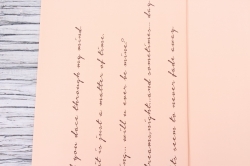 you dace through my mind
it is just a matter of time
will u ever be mine?
night and sometimes day
seem to never fade away